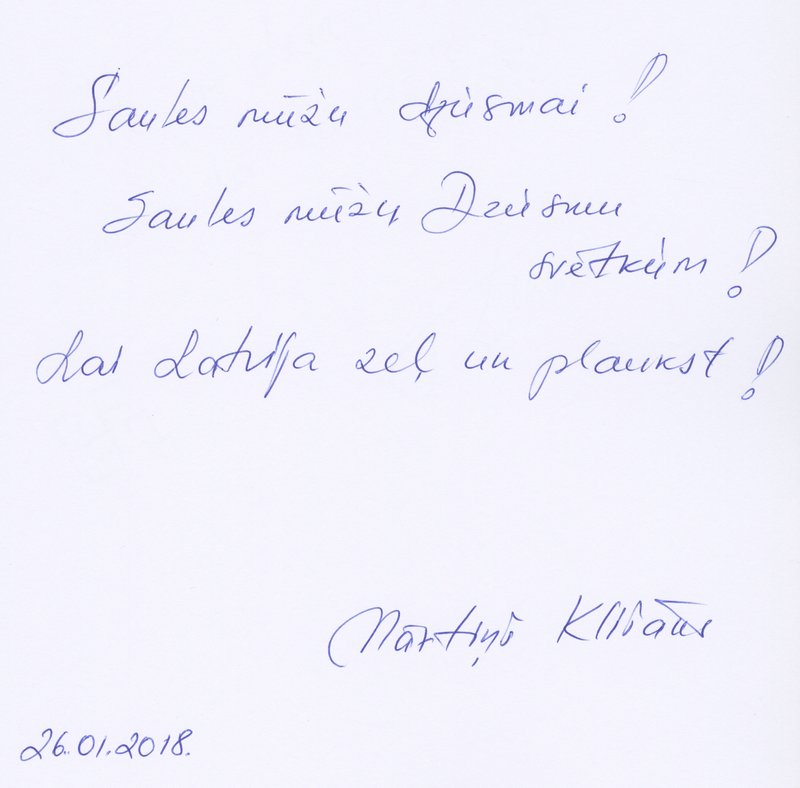 Saules mūžu dziesmai!
Saules mūžu Dziesmu
svētkiem!
Lai Latvija zeļ un plaukst!
Mārtiņš Klišāns
26.01.2018.